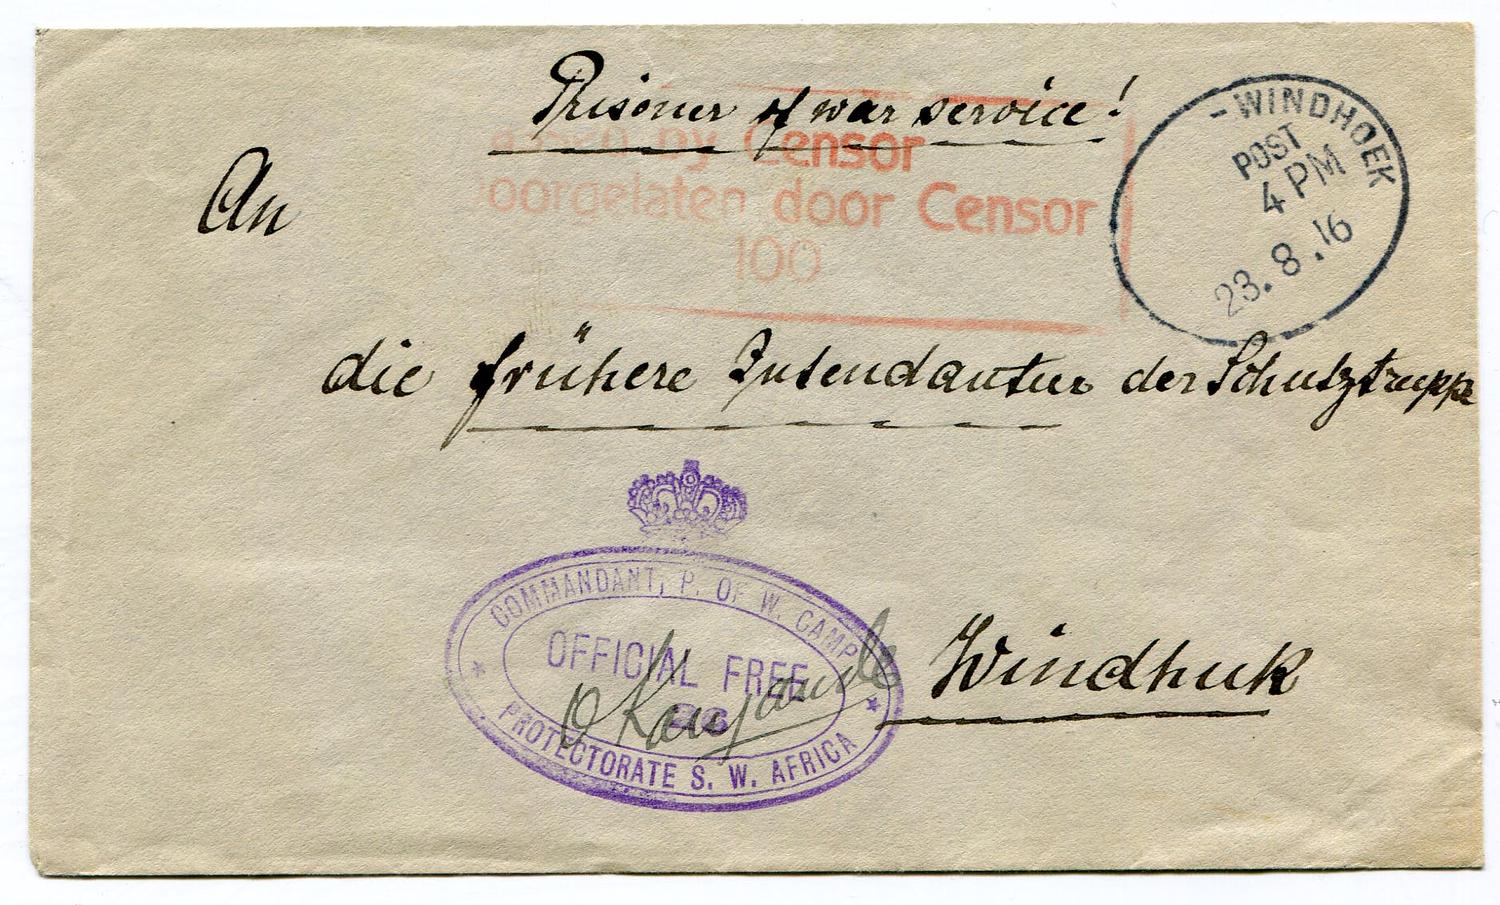 Prisoner of war service!
by Censor
Doorgelaten door Censor
100
- WINDHOEK
POST
4 PM
23.8.16
An
die frühere Intendantur der Schutztruppe
COMMANDANT, P. OF W. CAMP
OFFICIAL FREE
Okanjande
PROTECTORATE S. W. AFRICA
Windhuk